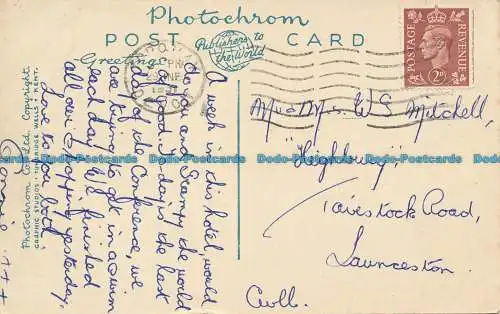 Photochrom
POST CARD
Publishers to the World
Greetings
POSTAGE
REVENUE
2D
A week in this hotel, would
do you and Grampy the world
of good. To-day is the last
day of the Conference, we
are trying to get in a swim
each day. We finished
all our shopping yesterday,
Love to you both,
Mr & Mrs W S Mitchell,
"Highbury",
Tavistock Road,
Launceston.
Cwll.
Photochrom Co. Ltd., Copyright.
GRAPHIC STUDIOS, TUNBRIDGE WELLS, KENT.
Dodo-Postcards Dodo-Postcards Dodo-Postcards Dodo-Postcards Dodo-Postcards